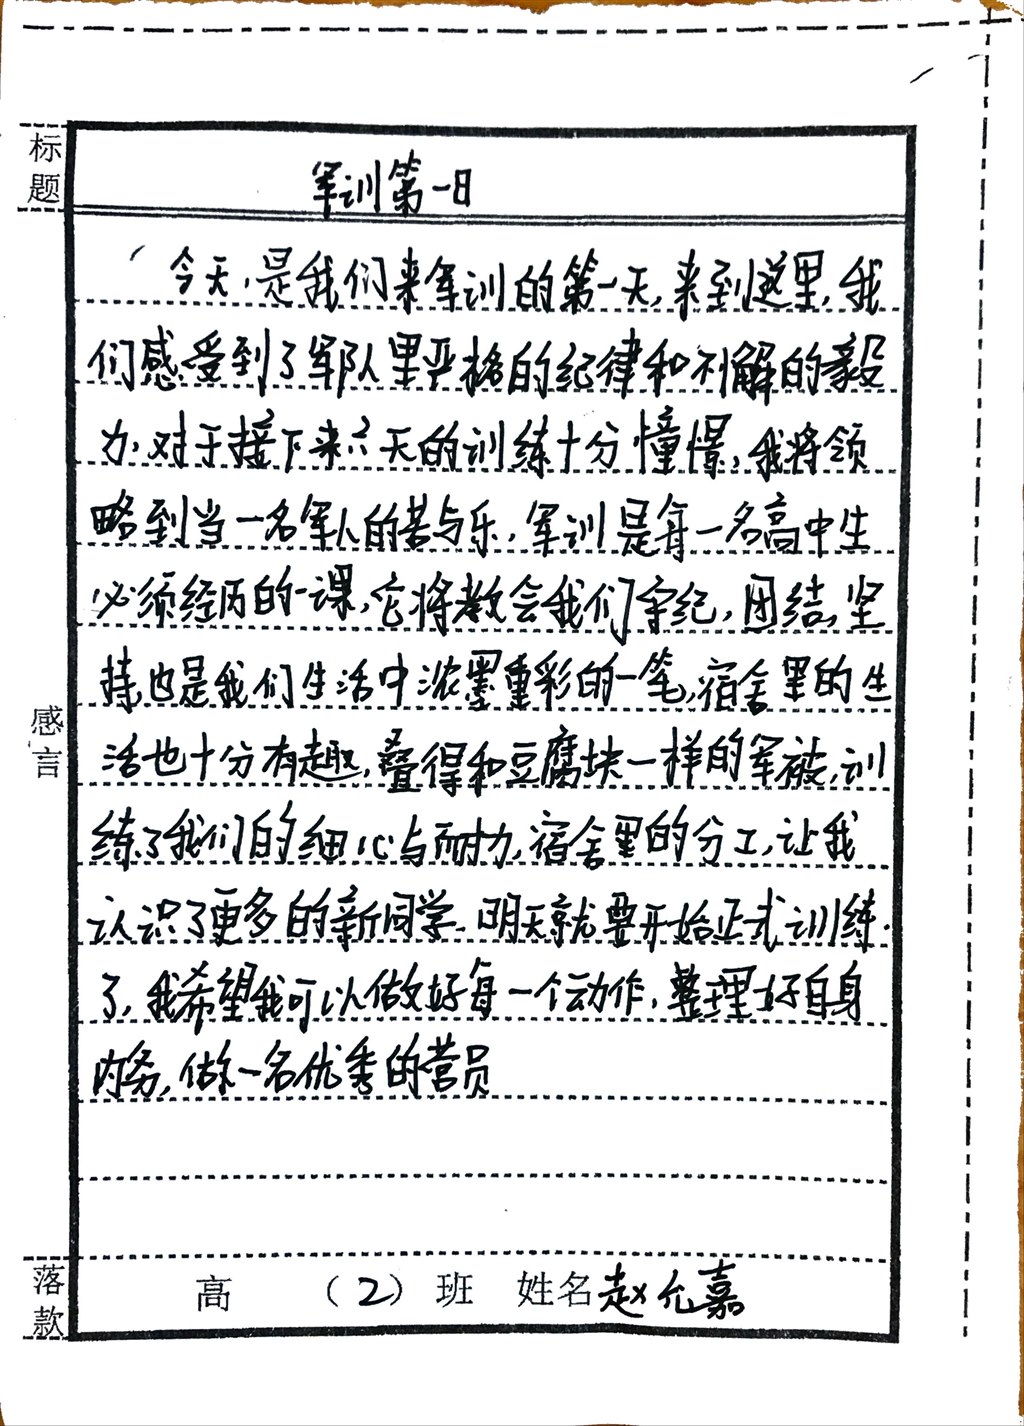 标题
军训第一日
今天,是我们来军训的第一天,来到这里,我
们感受到了军队里严格的纪律和不懈的毅
力,对于接下来六天的训练十分憧憬,我将领
略到当一名军人的苦与乐,军训是每一名高中生
必须经历的一课,它将教会我们守纪,团结,坚
持,也是我们生活中浓墨重彩的一笔,宿舍里的生
活也十分有趣,叠得和豆腐块一样的军被,训
练了我们的细心与耐力,宿舍里的分工,让我
感言
认识了更多的新同学.明天就要开始正式训练
了,我希望我可以做好每一个动作,整理好自身
内务,做一名优秀的营员
落款
高 (2)班 姓名赵允嘉